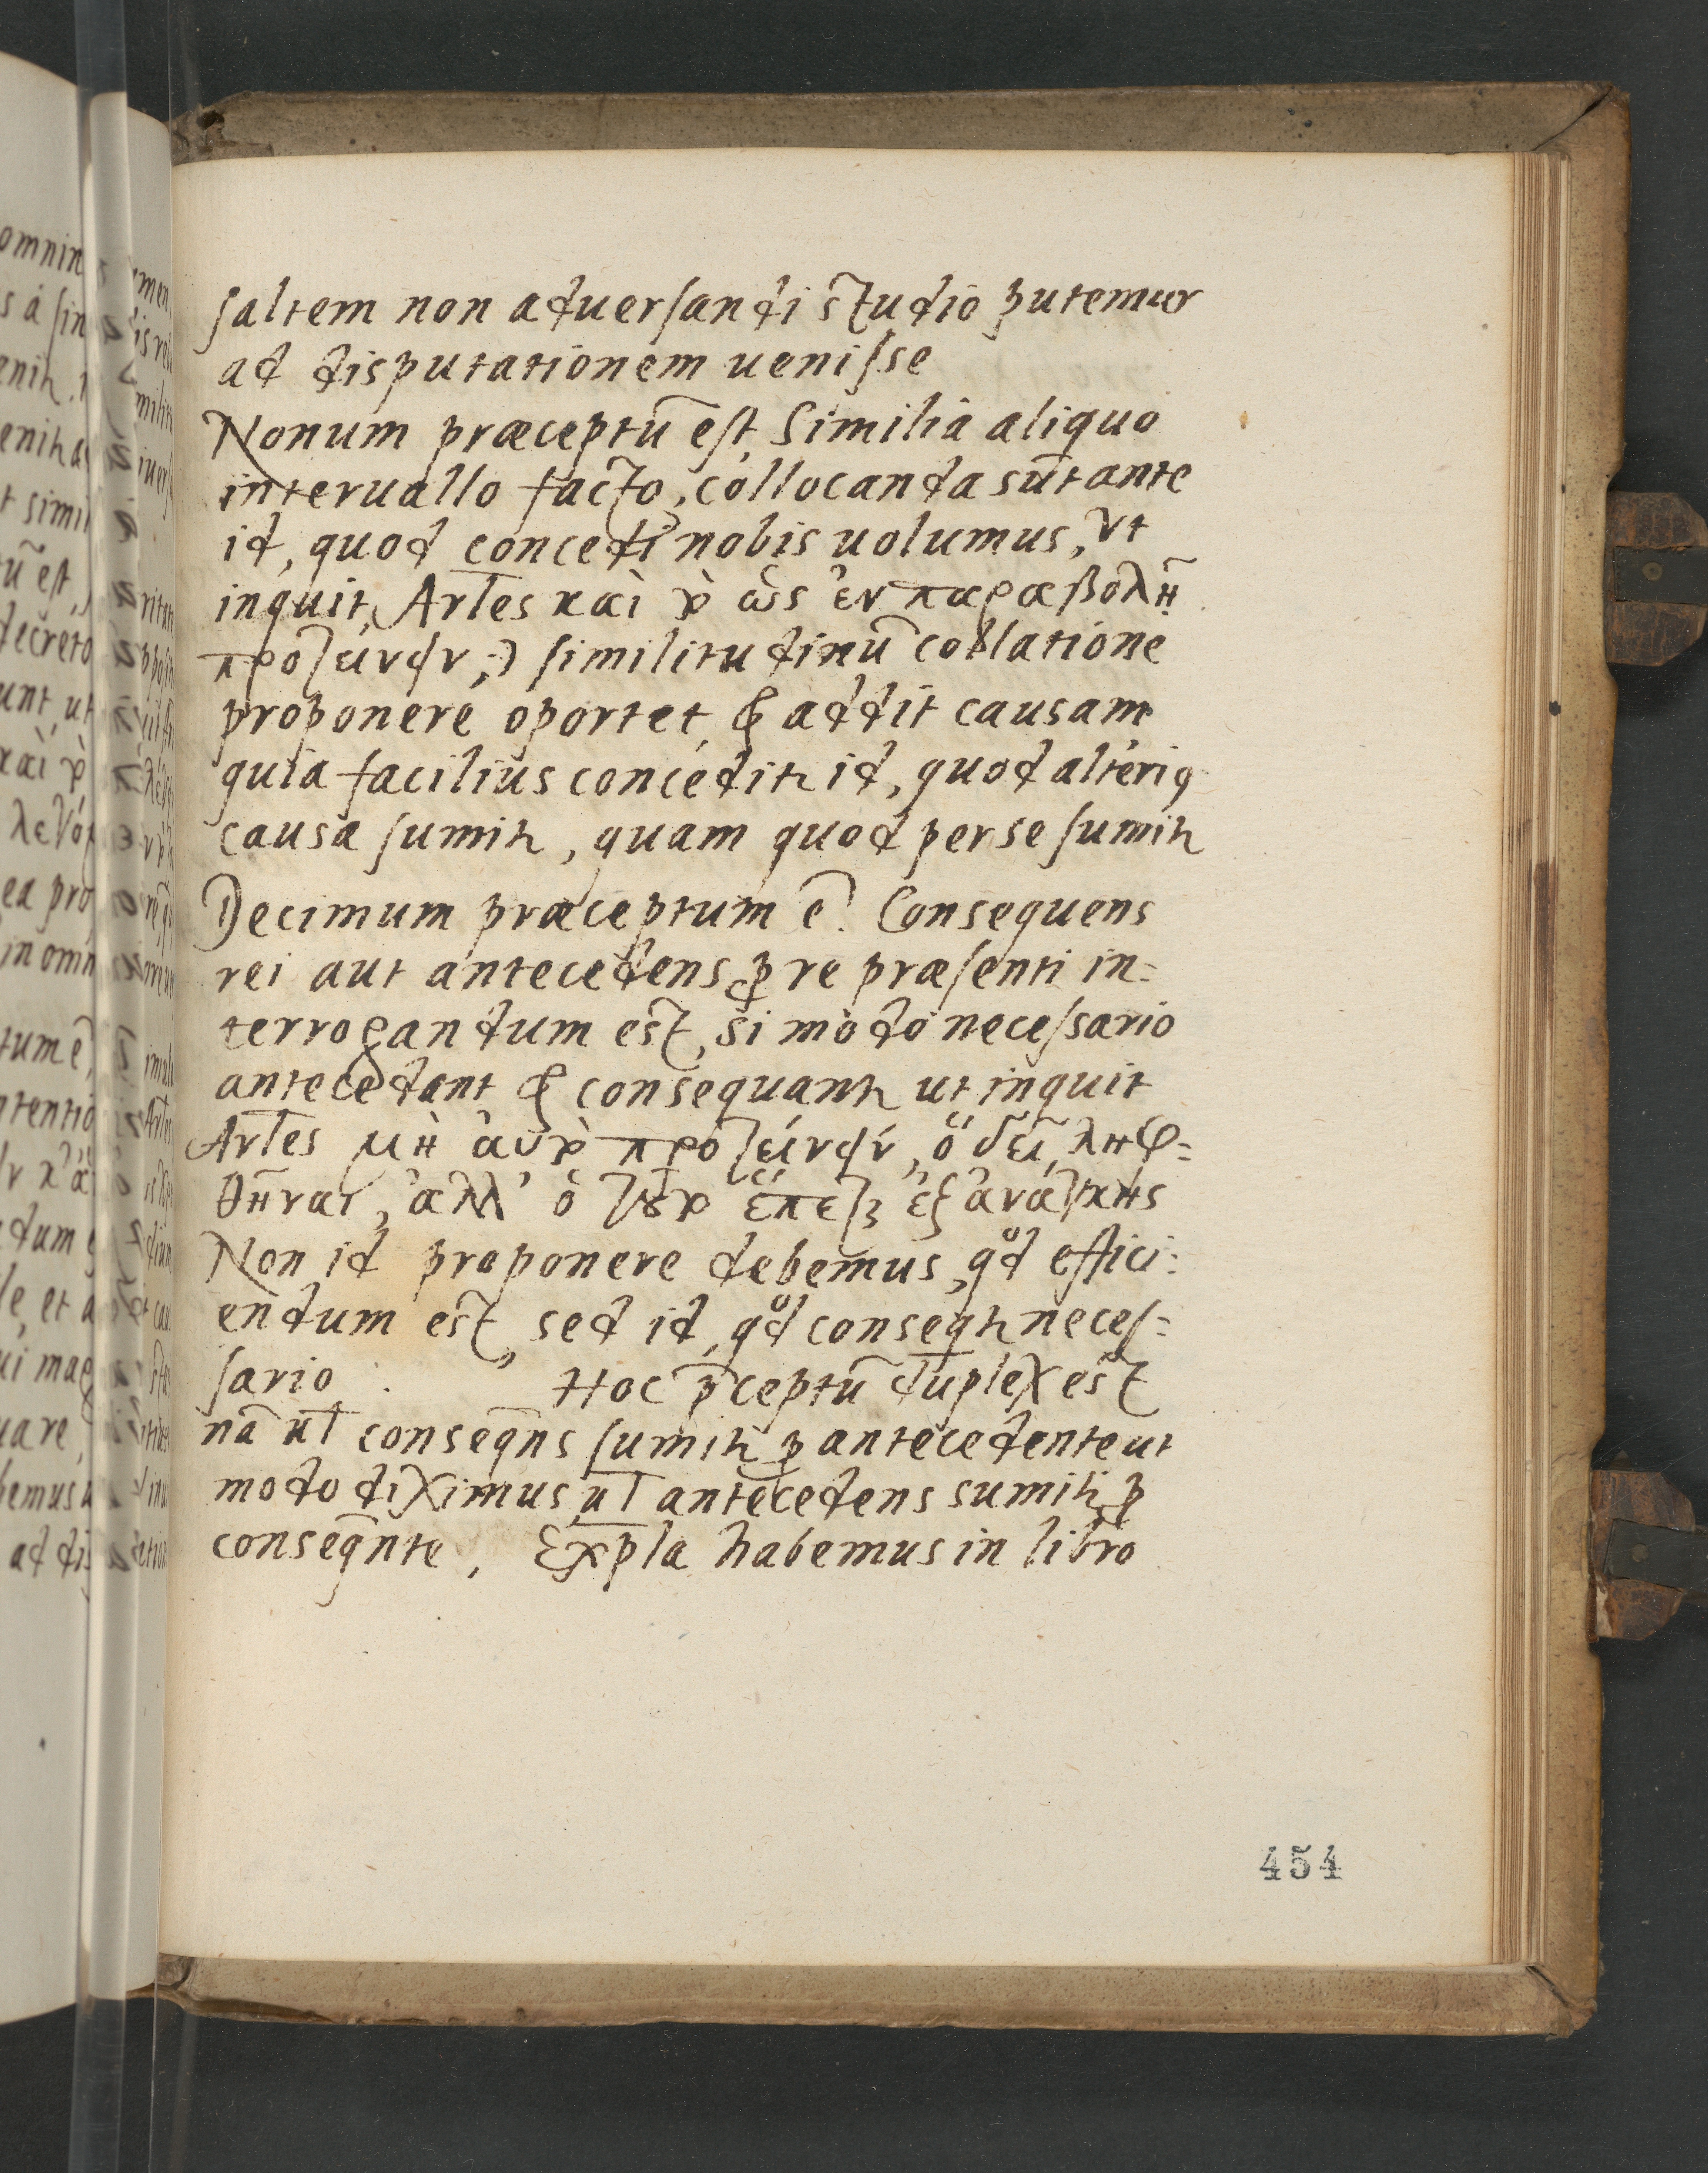 saltem non aduersandi studio putemur
ad disputationem uenisse
Nonum præceptū est, Similia aliquo
interuallo facto, collocanda sūt ante
id, quod concedi nobis uolumus, vt
inquit, Artes καὶ τὸ ὡς ἐν παραβολῇ
προτείνειν, similitudinū collatione
proponere oportet, & addit causam
quia facilius conceditr id, quod alteriq
causa sumitr, quam quod per se sumitr
Decimum præceptum ē. Consequens
rei aut antecedens p re præsenti in=
terrogandum est, si modo necessario
antecedant & consequantr ut inquit
Artes μὴ αὐτὸ προτείνειν, ὃ δεῖ, ληφ=
θῆναι, ἀλλ' ὃ τούτῳ ἕπεται ἐξ ἀνάγκης
Non id proponere debemus, qd effici=
endum est, sed id, qd conseqtr neces=
sario. Hoc p̄ceptū duplex est
nā ul conseqns sumitr p antecedente ut
modo diximus, ul antecedens sumitr p
conseqnte, Expla habemus in libro
454